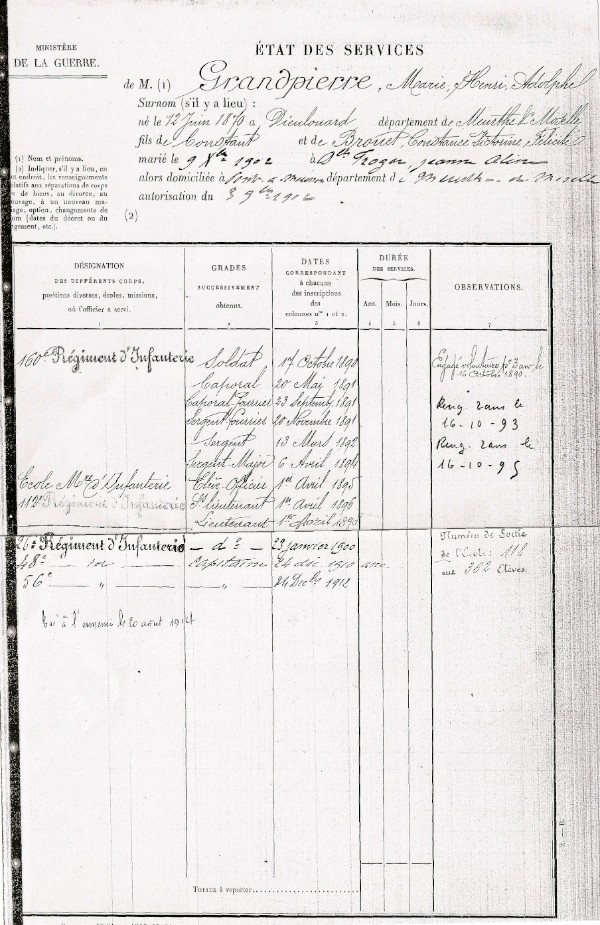 MINISTÈRE
DE LA GUERRE.
ÉTAT DES SERVICES
de M. (1) Grandpierre, Marie, Henri, Adolphe
Surnom (s'il y a lieu) :
né le 12 Juin 1870 à Dieulouard département de Meurthe & Moselle
fils de Constant et de Brouet, Constance Victorine, Félicité
marié le 9 Xbre 1902 à Dlle Troger, Jeanne
alors domiciliée à département de Meurthe et Moselle
autorisation du 3 9bre 1902
(2)
(1) Nom et prénoms.
(2) Indiquer, s'il y a lieu, en
et endroit, les renseignements
latifs aux séparations de corps
de biens, au divorce, au
euvage, à un nouveau ma-
age, option, changements de
om (dates du décret ou du
rgement, etc.).
DÉSIGNATION
DES DIFFÉRENTS CORPS,
positions diverses, écoles, missions,
où l'officier a servi.
1
GRADES
SUCCESSIVEMENT
obtenus.
2
DATES
CORRESPONDANT
à chacune
des inscriptions
des
colonnes nos 1 et 2.
3
DURÉE
DES SERVICES.
Ans. Mois. Jours.
4 5 6
OBSERVATIONS.
7
160e Régiment d'Infanterie Soldat 17 Octobre 1890 Engagé volontaire pr 3 ans le
16 Octobre 1890.
Caporal 20 Mai 1891
Caporal fourrier 23 Septemb. 1891 Reng. 2 ans le
Sergent fourrier 20 Novembre 1891 16-10-93
Sergent 13 Mars 1892 Reng. 2 ans le
Sergent Major 6 Avril 1894 16-10-95
Ecole Mre d'Infanterie Elève Officier 1er Avril 1895
Régiment d'Infanterie S/s lieutenant 1er Avril 1896
Lieutenant 1er Avril
26e Régiment d'Infanterie — do — 23 Janvier 1900 Numéro de Sortie
de l'Ecole : 118
48e — Capitaine 24 déc. 1910 sur 362 Elèves.
56e — " — — " — 24 Decbre 1912
Tué à l'ennemi le 20 août 1914
Totaux à reporter